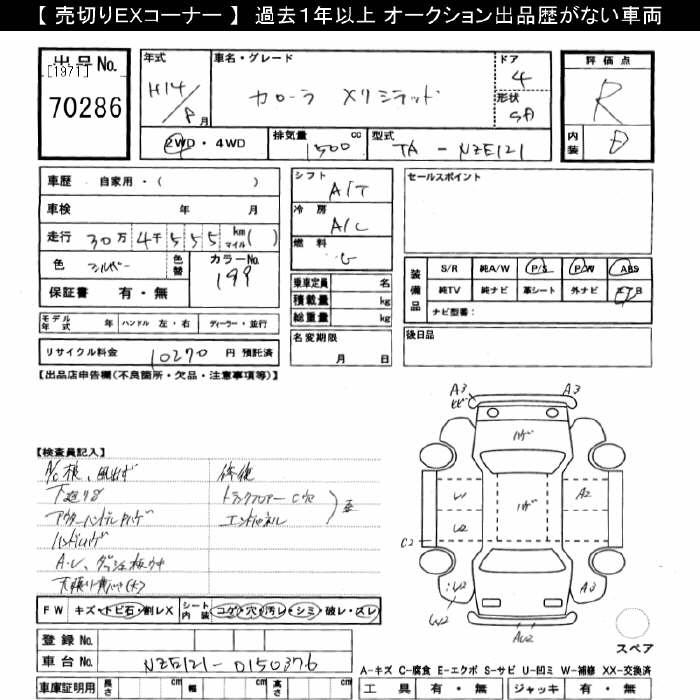 【 売切りEXコーナー 】 過去1年以上 オークション出品歴がない車両
出品No.
[1971]
70286
年式
H14/8月
車名・グレード
カローラ Xリミテッド
ドア
4
形状
SD
評価点
R
内装
D
2WD・4WD
排気量 cc
1500
型式
TA - NZE121
車歴 自家用・( )
車検 年 月
走行 30万4千555 km マイル( )
色 シルバー 色替
カラーNo.
199
保証書 有・無
シフト
A/T
冷房
A/C
燃料
G
乗車定員 名
積載量 kg
総重量 kg
セールスポイント
装備品
S/R 純A/W P/S P/W ABS
純TV 純ナビ 革シート 外ナビ エアB
ナビ型番:
モデル年式 年 ハンドル 左・右 ディーラー・並行
リサイクル料金 10270 円 預託済
名変期限
月 日
後日品
【出品店申告欄(不良箇所・欠品・注意事項等)】
【検査員記入】
A/C
下廻りS
アウターハンドルハゲ
ハンドルハゲ
修復
トランクフロアー C穴
エンドパネル
歪
A3
A3
ハゲ
W1
ハゲ
A2
U2
C2
W2
A3
AU2
FW キズ・トビ石・割レX
シート内装 コゲ・穴・汚レ・シミ・破レ・スレ
登録No.
車台No. NZE121-0150376
スペア
A−キズ C−腐食 E−エクボ S−サビ U−凹ミ W−補修 XX−交換済
車庫証明用 長さ cm 幅 cm 高さ cm
工具 有・無 ジャッキ 有・無